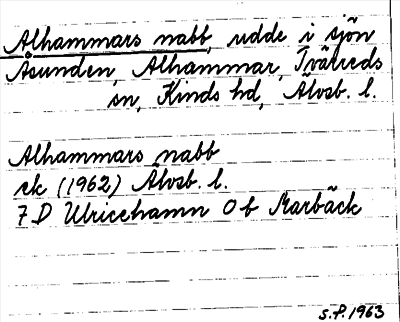 Alhammars nabb, udde i sjön
Åsunden, Alhammar, Tvärreds
sn, Kinds hd, Älvsb. l.
Alhammars nabb
ek (1962) Älvsb. l.
7 D Ulricehamn Ob Marbäck
S.P. 1963